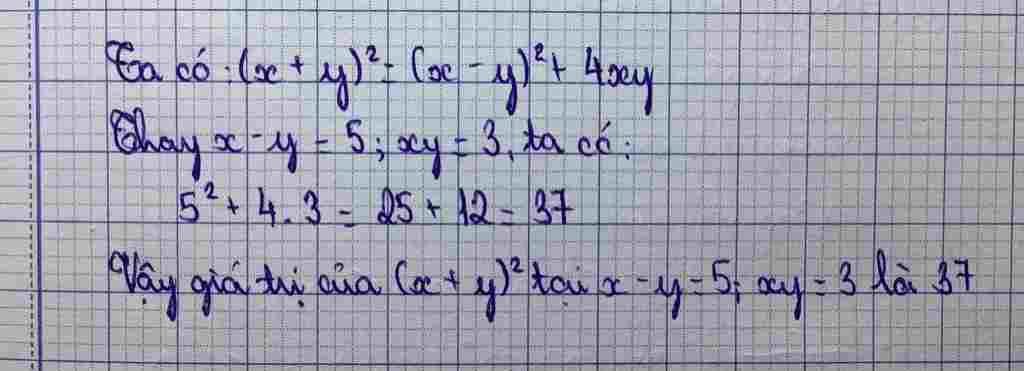 Ta có: (x + y)² = (x - y)² + 4xy
Thay x - y = 5; xy = 3, ta có:
5² + 4 . 3 = 25 + 12 = 37
Vậy giá trị của (x + y)² tại x - y = 5; xy = 3 là 37